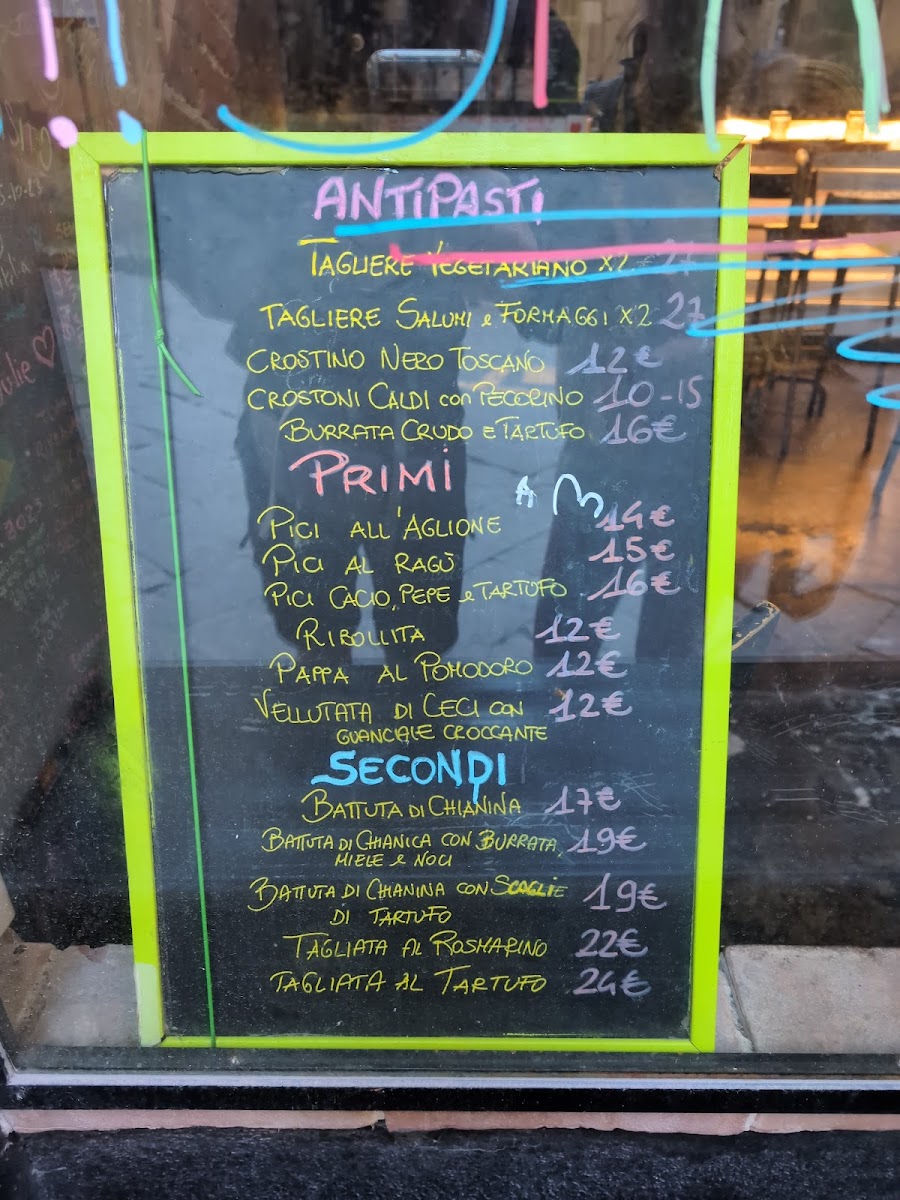 ANTIPASTI
TAGLIERE VEGETARIANO X2
TAGLIERE SALUMI e FORMAGGI X2 27
CROSTINO NERO TOSCANO 12€
CROSTONI CALDI con PECORINO 10-15
BURRATA CRUDO E TARTUFO 16€
PRIMI
PICI ALL'AGLIONE 14€
PICI AL RAGÙ 15€
PICI CACIO, PEPE e TARTUFO 16€
RIBOLLITA 12€
PAPPA AL POMODORO 12€
VELLUTATA DI CECI CON 12€
GUANCIALE CROCCANTE
SECONDI
BATTUTA DI CHIANINA 17€
BATTUTA DI CHIANICA CON BURRATA, 19€
MIELE e NOCI
BATTUTA DI CHIANINA CON SCAGLIE 19€
DI TARTUFO
TAGLIATA AL ROSMARINO 22€
TAGLIATA AL TARTUFO 24€